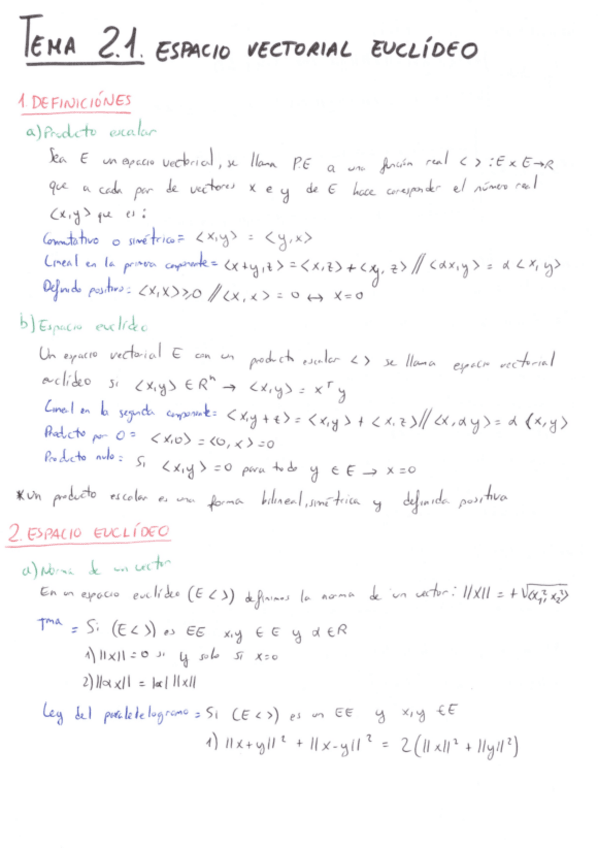 TEMA 2.1. ESPACIO VECTORIAL EUCLÍDEO
1. DEFINICIÓNES
a) Producto escalar
Sea E un espacio vectorial, se llama PE a una función real < > : E x E → R
que a cada par de vectores x e y de E hace corresponder el número real
<x,y> que es:
Conmutativo o simétrico = <x,y> = <y,x>
Lineal en la primera componente = <x+y,z> = <x,z> + <y,z> // <αx,y> = α <x,y>
Definido positivo: <x,x> ≥ 0 // <x,x> = 0 ↔ x=0
b) Espacio euclídeo
Un espacio vectorial E con un producto escalar < > se llama espacio vectorial
euclídeo si <x,y> ∈ Rⁿ → <x,y> = xᵀ y
Lineal en la segunda componente = <x,y+z> = <x,y> + <x,z> // <x,αy> = α <x,y>
Producto por 0 = <x,0> = <0,x> = 0
Producto nulo = Si <x,y> = 0 para todo y ∈ E → x=0
* Un producto escalar es una forma bilineal, simétrica y definida positiva
2. ESPACIO EUCLÍDEO
a) Norma de un vector
En un espacio euclídeo (E < >) definimos la norma de un vector: ||x|| = +
Tma = Si (E < >) es EE x,y ∈ E y α ∈ R
1) ||x|| = 0 si y solo si x=0
2) ||αx|| = |α| ||x||
Ley del paralelelogramo = Si (E < >) es un EE y x,y ∈ E
1) ||x+y||² + ||x-y||² = 2(||x||² + ||y||²)